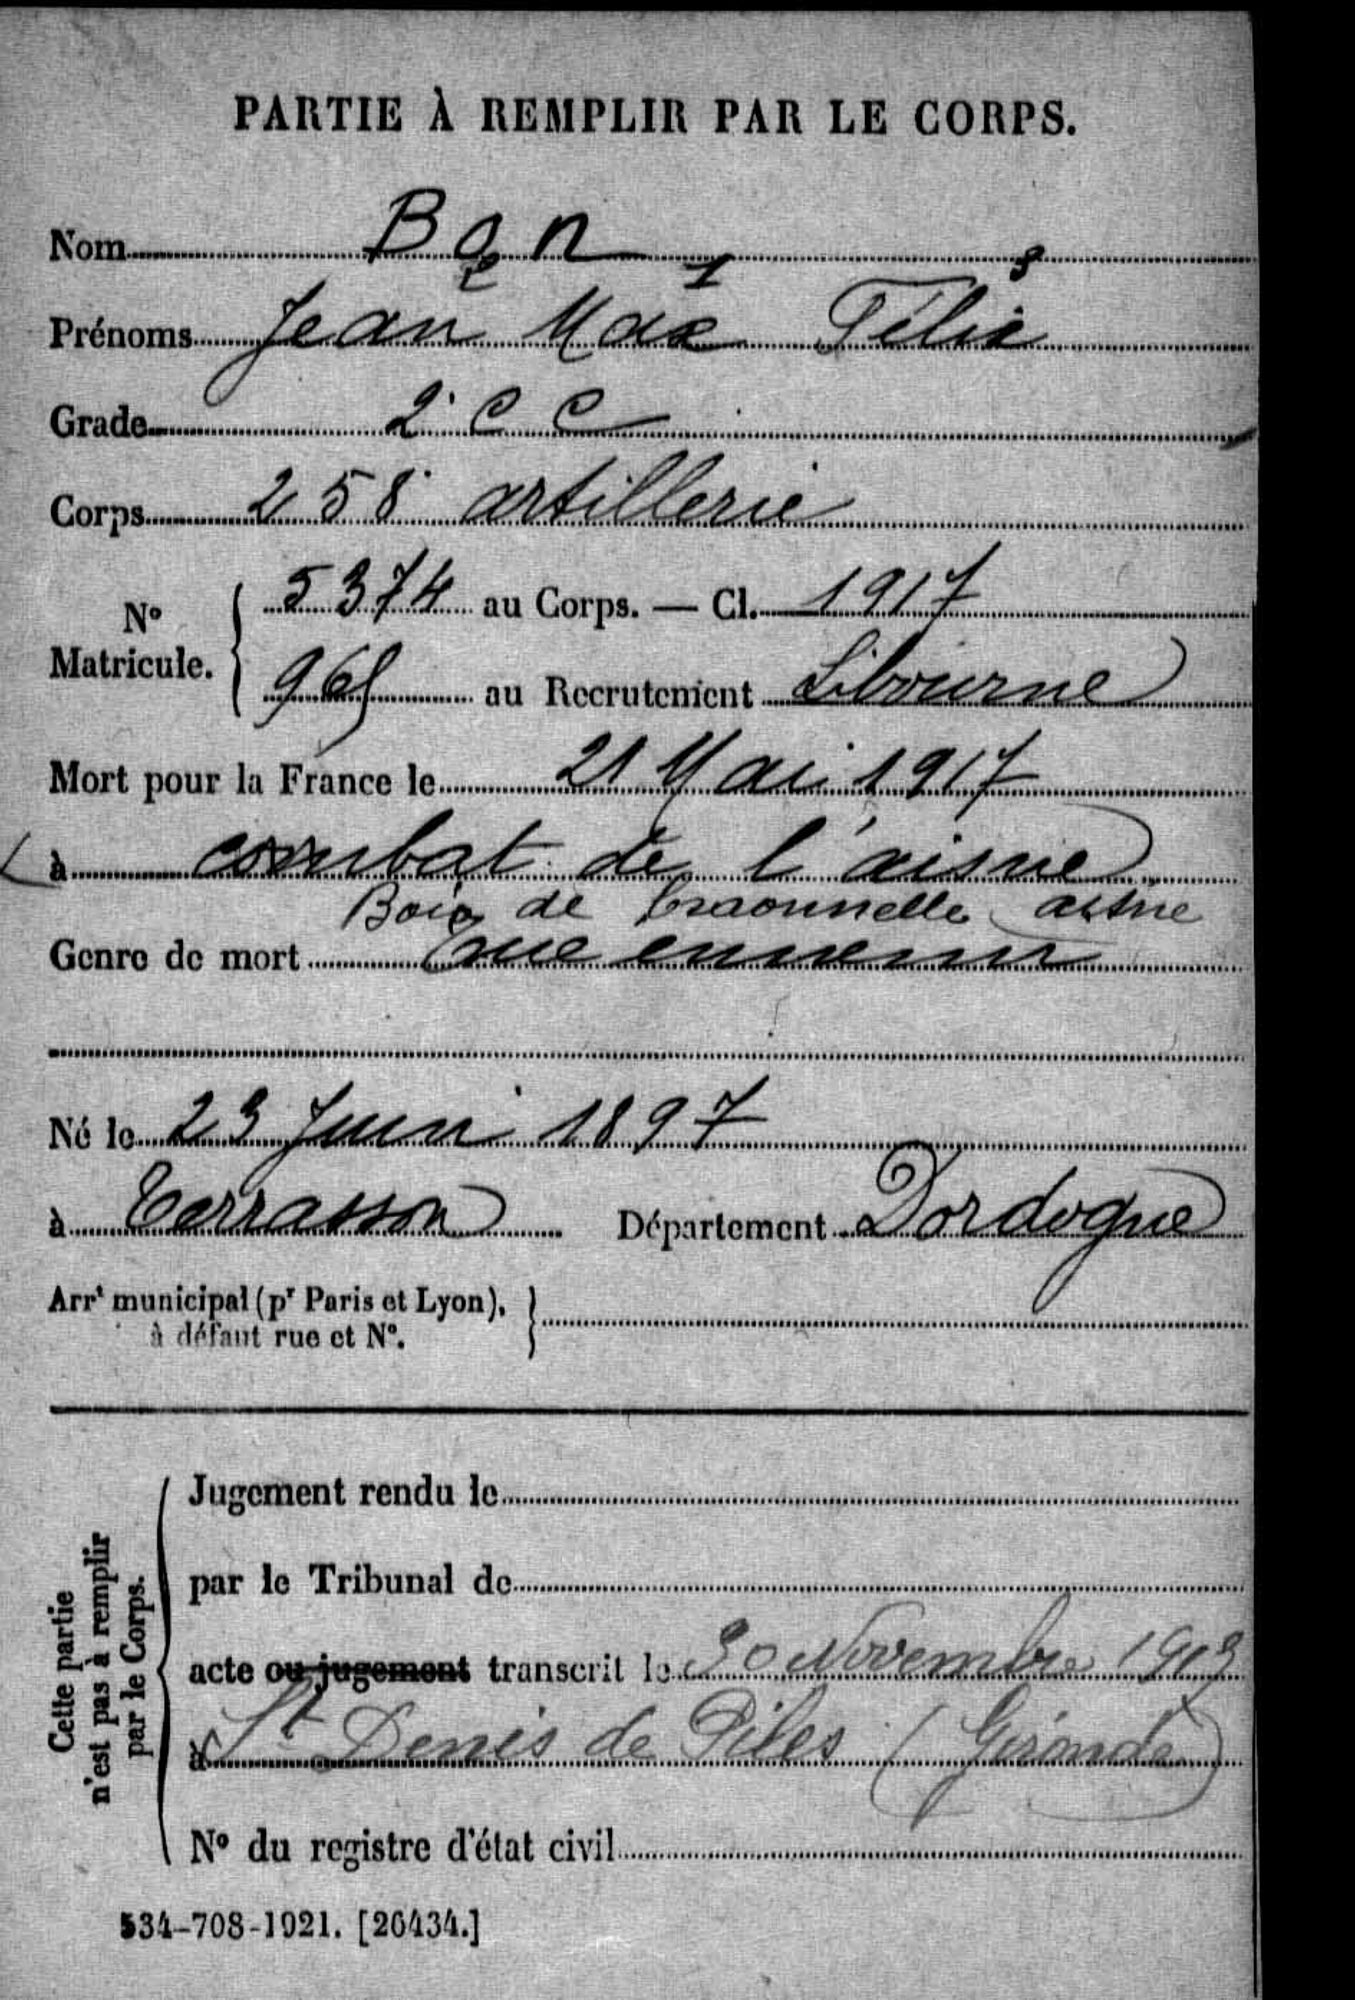 PARTIE À REMPLIR PAR LE CORPS.
Nom Bon
2 1 3
Prénoms Jean Max Félix
Grade 2e C C
Corps 258e artillerie
N° Matricule. 5374 au Corps. — Cl. 1917
965 au Recrutement Libourne
Mort pour la France le 21 Mai 1917
à combat de l'aisne
Bois de Craonnelle aisne
Genre de mort Tué ennemi
Né le 23 Juin 1897
à Terrasson Département Dordogne
Arrt municipal (pr Paris et Lyon),
à défaut rue et N°.
Cette partie
n'est pas à remplir
par le Corps.
Jugement rendu le
par le Tribunal de
acte ou jugement transcrit le 30 Novembre
à St Denis de Piles (Gironde)
N° du registre d'état civil
534-708-1921. [26434.]